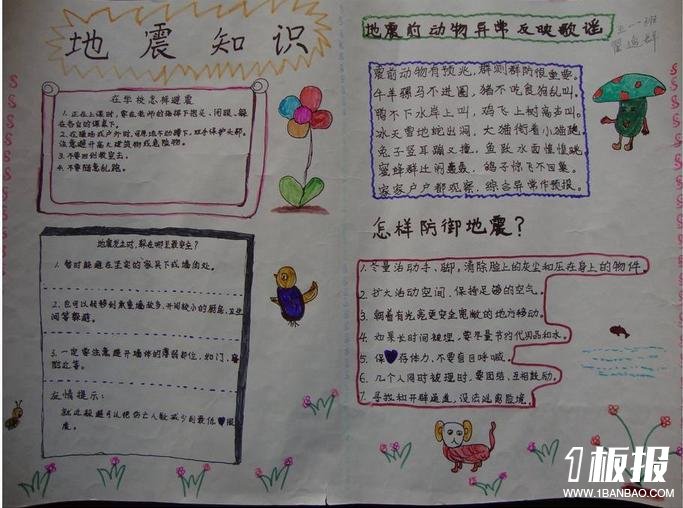 地震知识
在学校怎样避震
1.正在上课时,要在老师的指挥下抱头、闭眼、躲
在各自的课桌下。
2.在操场或户外时,可原地不动蹲下,双手保护头部,
注意避开高大建筑物或危险物。
3.不要回到教室去。
4.不要随意乱跑。
地震发生时,躲在哪里最安全?
1.暂时躲避在坚实的家具下或墙角处。
2.也可以转移到承重墙较多、开间较小的厨房、卫生
间等躲避。
3.一定要注意避开墙体的薄弱部位,如门、窗
附近等。
友情提示:
就此躲避可以把伤亡人数减少到最低限
度。
地震前动物异常反映歌谣
五一班
震前动物有预兆,群测群防很重要。
牛羊骡马不进圈,猪不吃食狗乱叫。
鸭不下水岸上叫,鸡飞上树高声叫。
冰天雪地蛇出洞,大猫衔着小猫跑。
兔子竖耳蹦又撞,鱼跃水面惶惶跳。
蜜蜂群迁闹轰轰,鸽子惊飞不回巢。
家家户户都观察,综合异常作预报。
怎样防御地震?
1.尽量活动手、脚,清除脸上的灰尘和压在身上的物件。
2.扩大活动空间,保持足够的空气。
3.朝着有光亮更安全宽敞的地方移动。
4.如果长时间被埋,要尽量节约代用品和水。
5.保存体力,不要盲目呼喊。
6.几个人同时被埋时,要团结,互相鼓励。
7.寻找和开辟通道,设法逃离险境。
1板报
WWW.1BANBAO.COM